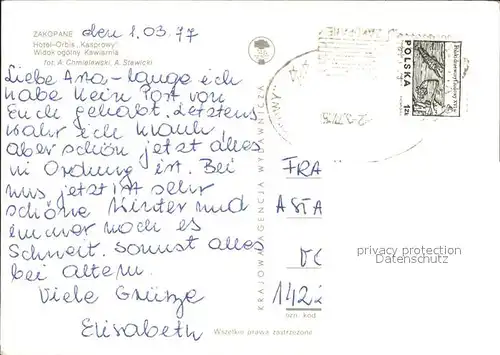 den 1.03.77
ZAKOPANE
Hotel-Orbis „Kasprowy"
Widok ogólny Kawiarnia
fot. A. Chmielewski, A. Stawicki
Liebe Ana - lange ich
habe kein Post von
Euch gehabt. Letztens
wahr ich krank,
aber schön jetzt alles
in Ordnung ist. Bei
uns jetzt ist sehr
schöne Winter und
immer noch es
Schneit. sonnst alles
bei altem.
Viele Grütze
Elisabeth
KRAJOWA AGENCJA WYDAWNICZA
POLSKA
FRA
ASTA
142
ozn. kod
privacy protection
Datenschutz
Wszelkie prawa zastrzeżone